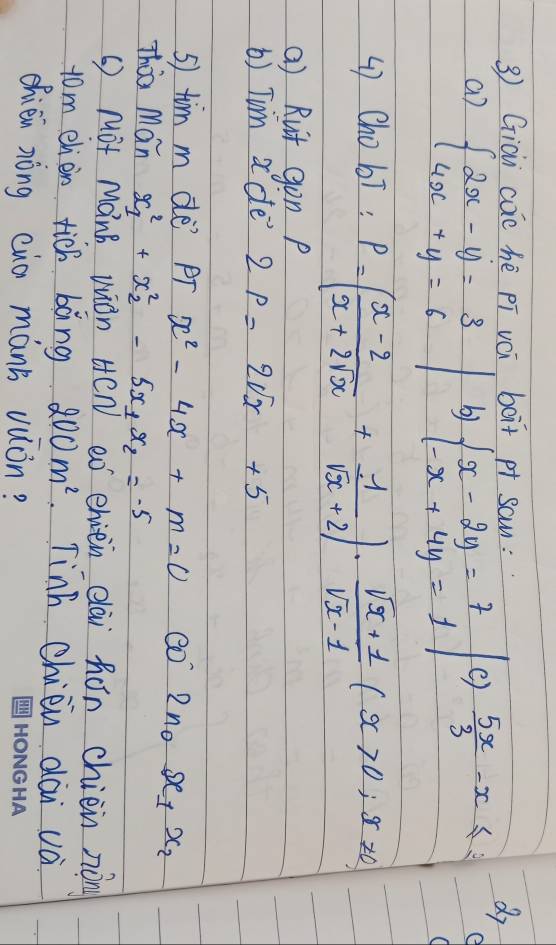 3) Giải các hệ PT và bất pt sau:
a) { 2x - y = 3 | b) { x - 2y = 7 | c) 5x/3 - x ≤
4x + y = 6 | -x + 4y = 1 |
4) Cho bT : P = ( x - 2 / x + 2√x + 1 / √x + 2 ) . √x + 1 / √x - 1 ( x > 0 ; x ≠
a) Rút gọn P
b) Tìm x để 2P = 2√x + 5
5) tìm m để PT x² - 4x + m = 0 có 2 no x₁ x₂
Thỏa mãn x₁² + x₂² - 5x₁x₂ = -5
6) Một mảnh vườn HCN có chiều dài hơn chiều rộng
10m diện tích bằng 200m². Tính chiều dài và
chiều rộng của mảnh vườn?
HONG HA